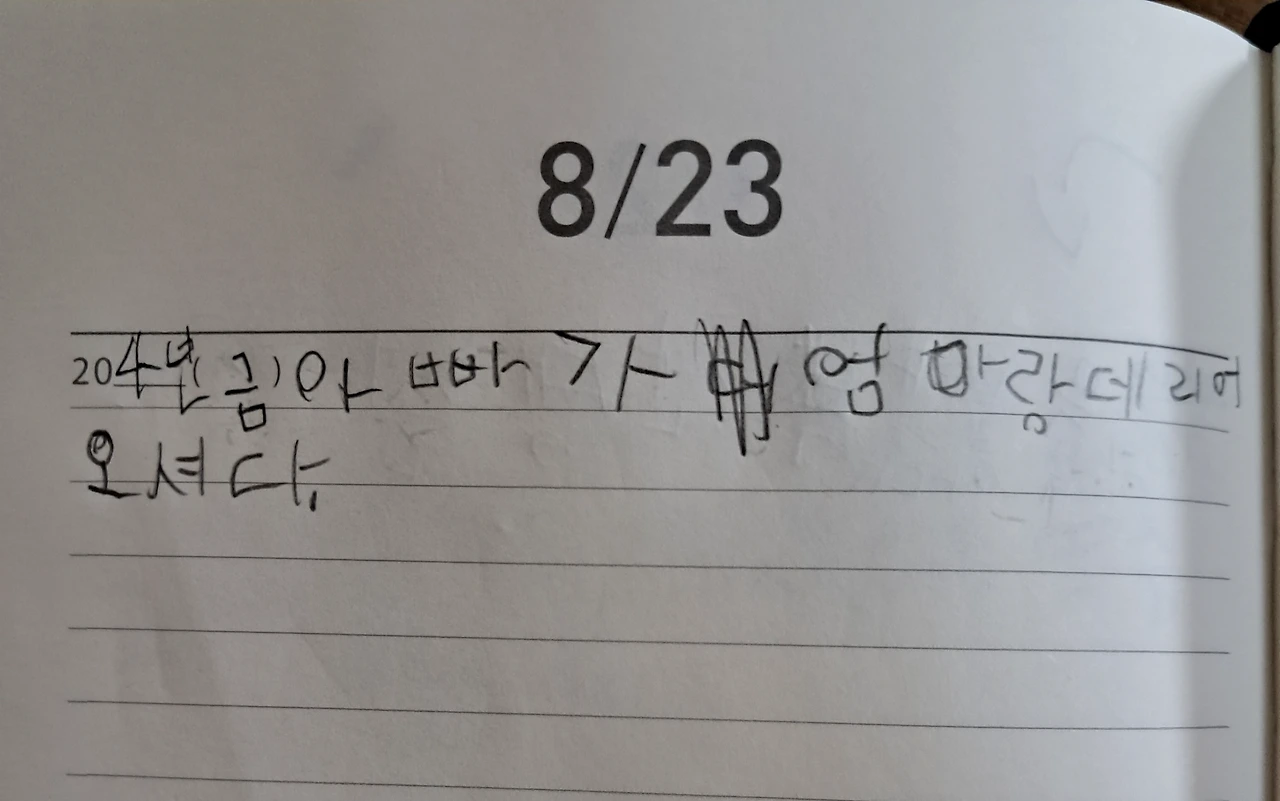 8/23
204년(금)아빠가 엄마랑데리어
오셔다.